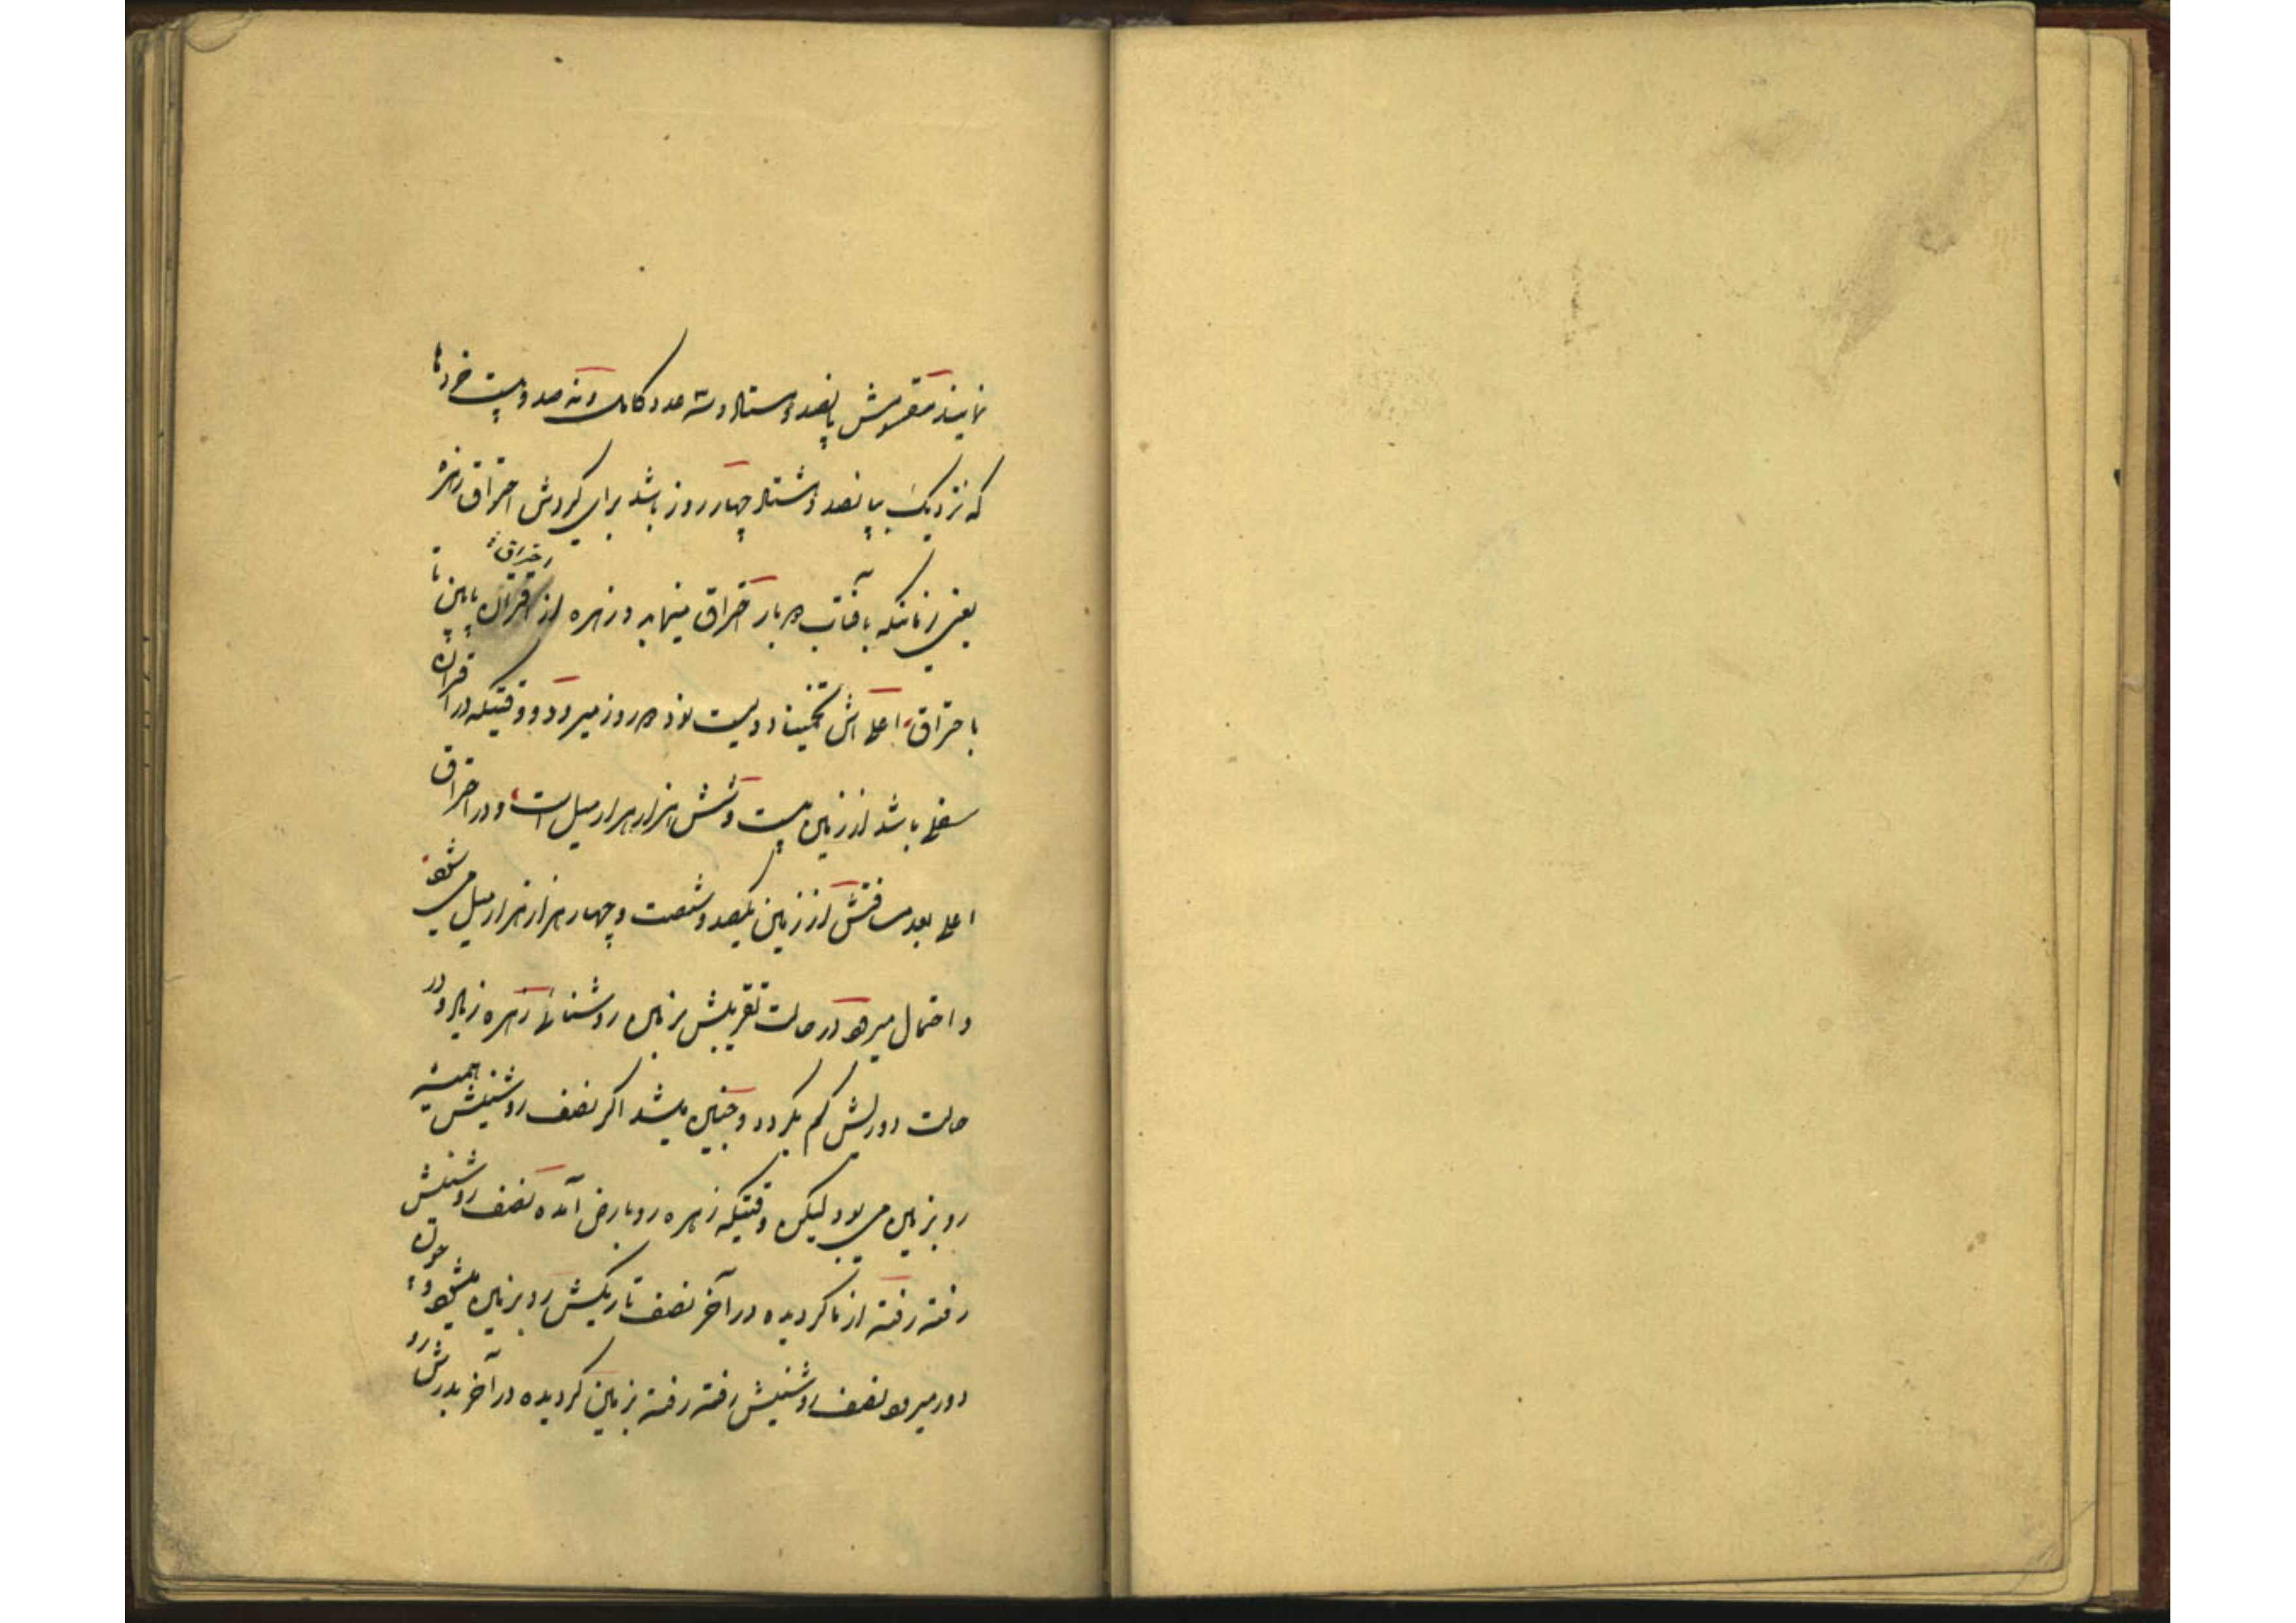 نمایند مقسومش پانصد و هشتاد و سه عدد کامل و نه صد و بیست خرد تا
که نزدیک بپانصد و هشتاد چهار روز باشد برای گردش احتراق زهره
یعنی زمانیکه بآفتاب دو بار احتراق مینماید و زهره از احتراق پایین تا
باحتراق اعلی اش تخمیناً دویست نود دو روز میرود و وقتیکه در اقتران
سفلی باشد از زمین بیست و شش هزار هزار میل است و در احتراق
اعلی بعد مسافتش از زمین یکصد و شصت و چهار هزار هزار میل می شود
و احتمال میرود در حالت تقریبش بزمین روشنائی زهره زیاد و در
حالت دوریش کم بگردد و چنین میشد اگر نصف روشنیش همیشه
رو بزمین می بود لیکن وقتیکه زهره رو بارض آمده نصف روشنیش
رفته رفته از ما گردیده در آخر نصف تاریکش رو بزمین میشود و چون
دور میرود نصف روشنیش رفته رفته بزمین گردیده در آخر بدرش رو